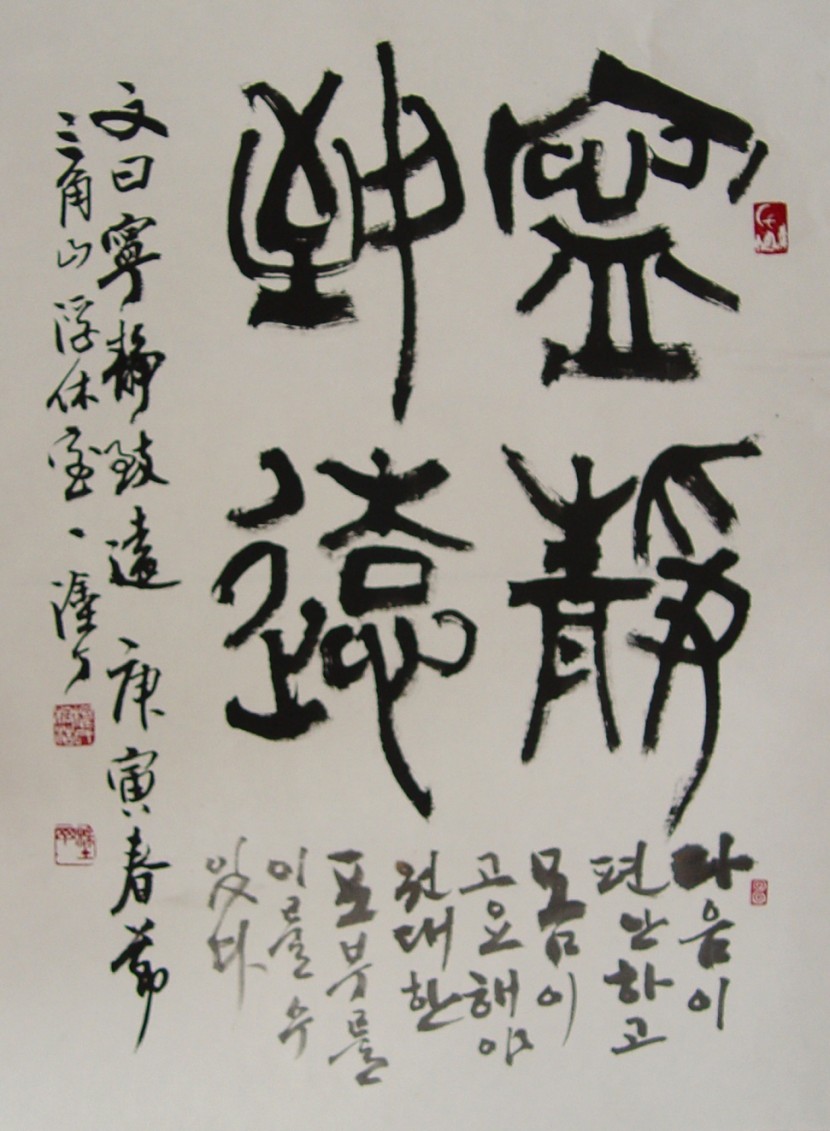 寧靜
致遠
마음이
편안하고
몸이
고요해야
원대한
포부를
이룰 수
있다
文曰寧靜致遠 庚寅春節
三角山 浮休室